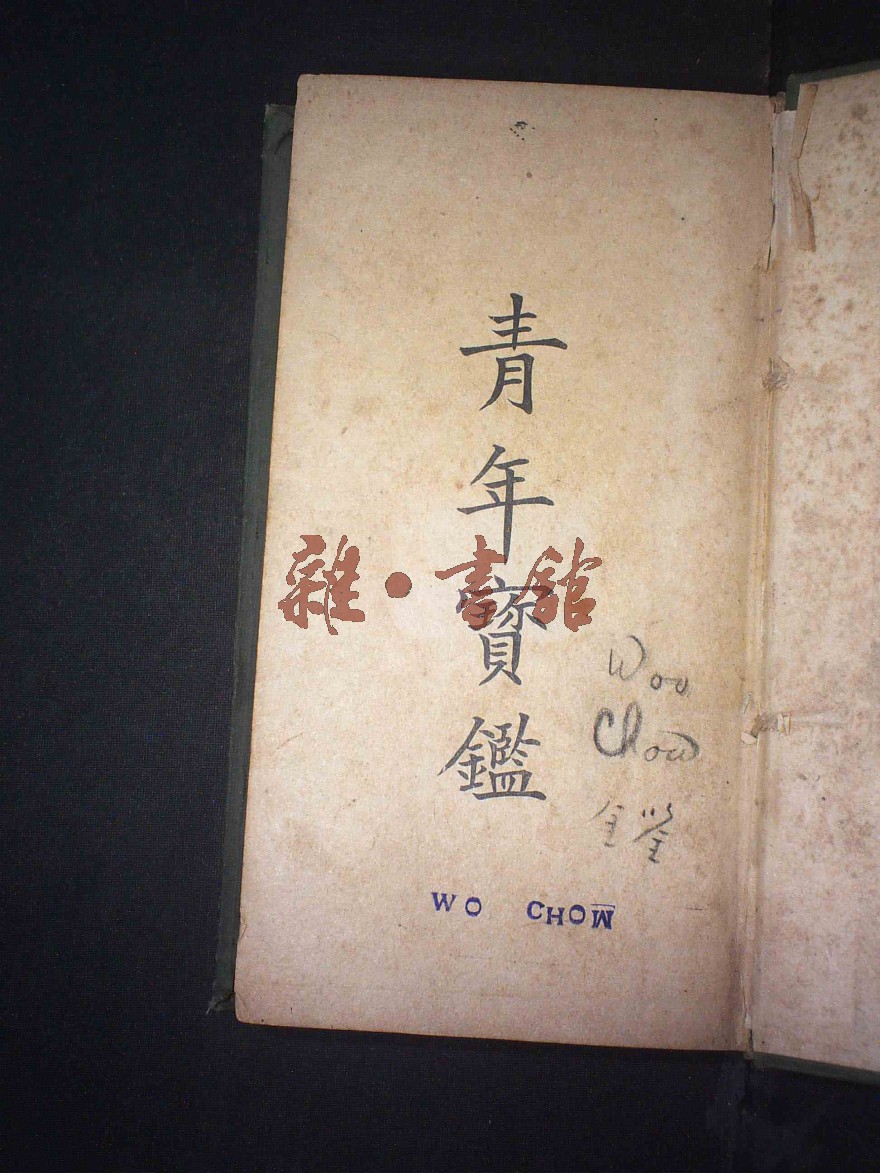 青年寶鑑
雜·書館
Woo
Chow
WO CHOW